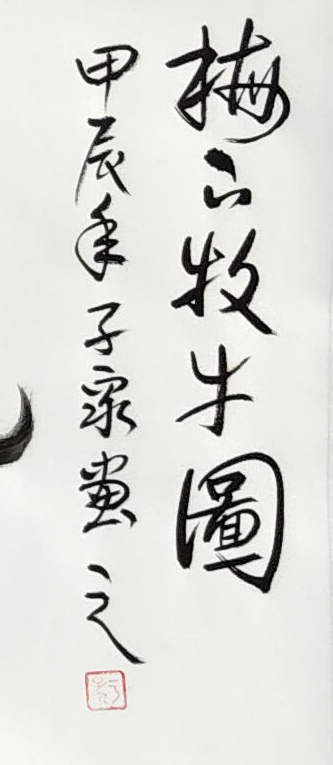 梅下牧牛圖
甲辰年子家畫之